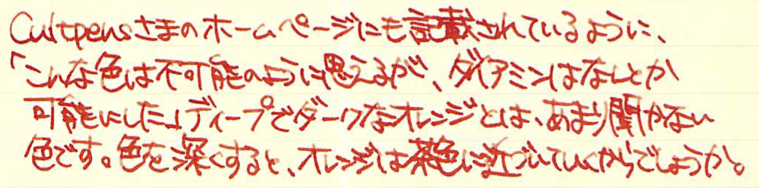 Cultpensさまのホームページにも記載されているように、
「こんな色は不可能のように思えるが、ダイアミンはなんとか
可能にした」ディープでダークなオレンジとは、あまり聞かない
色です。色を深くすると、オレンジは茶色に近づいていくからでしょうか。